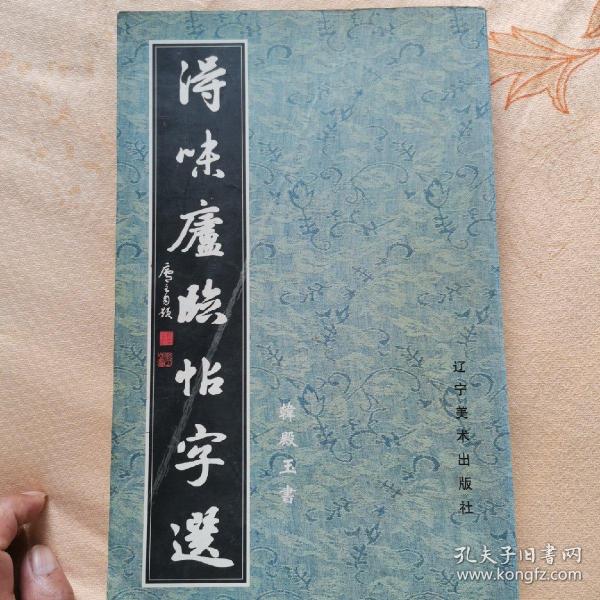 得味廬臨帖字選
韓殿玉書
辽宁美术出版社
孔夫子旧书网
www.kongfz.com